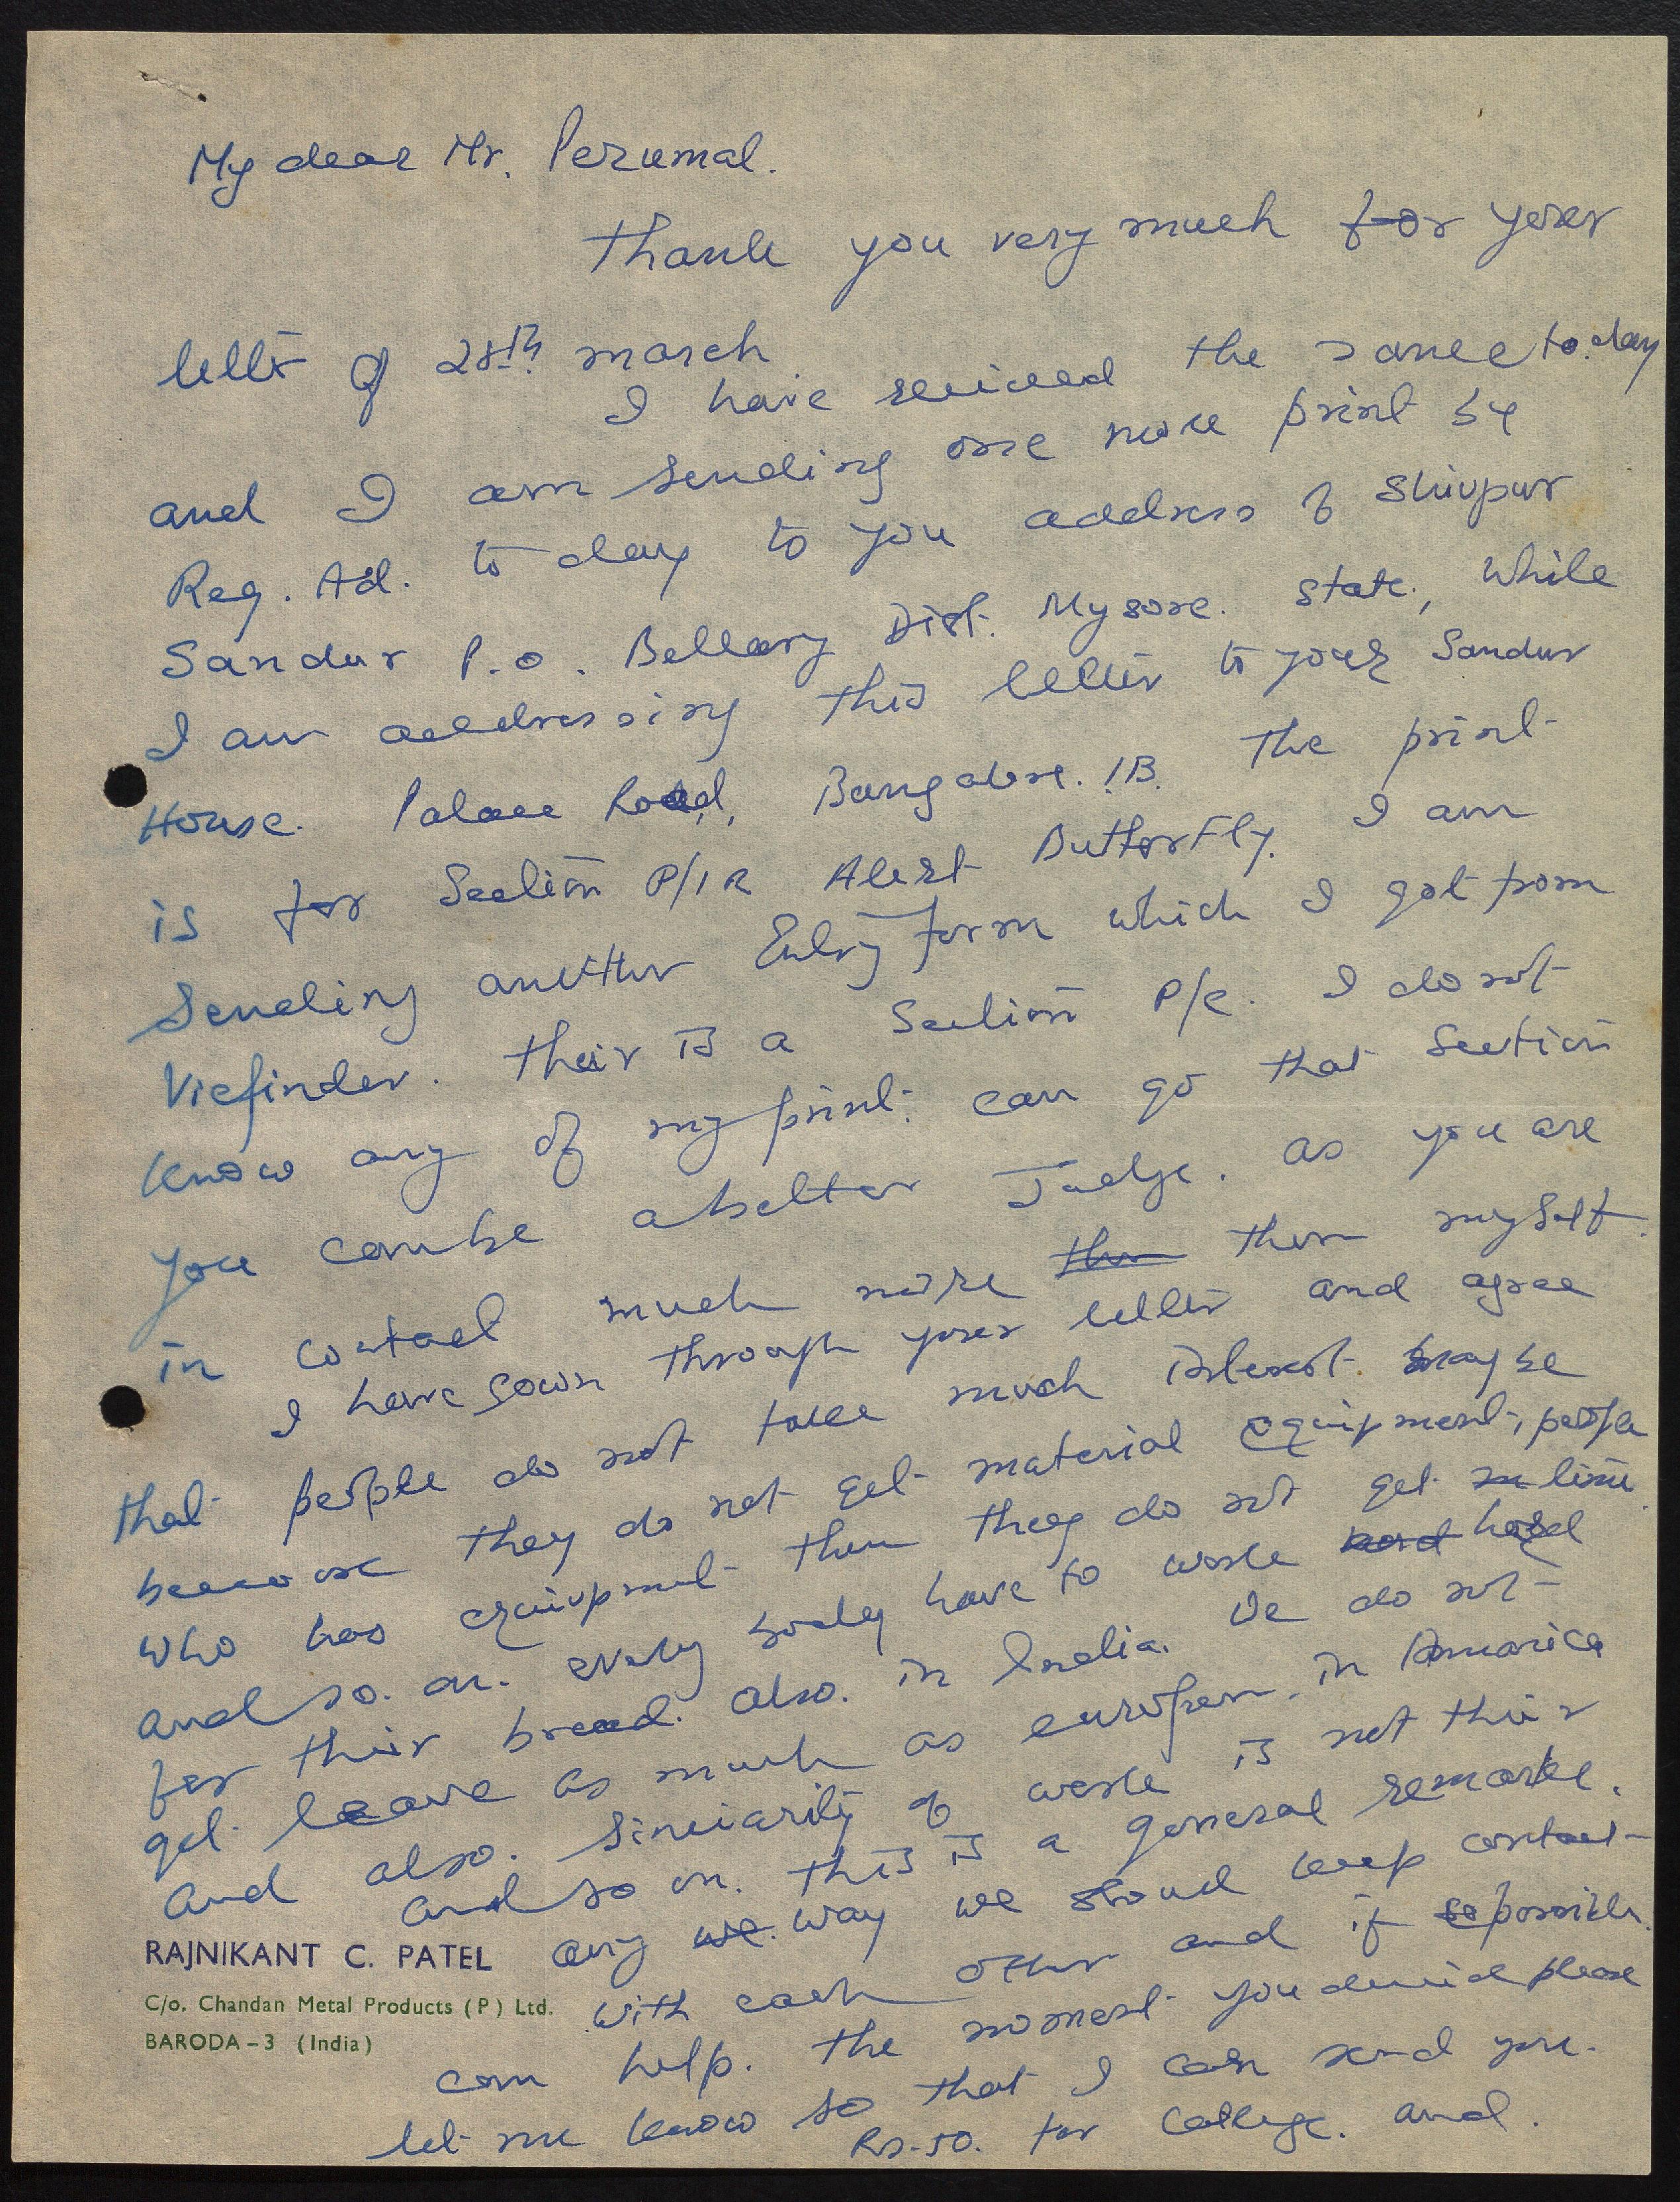 My dear Mr. Perumal.
Thank you very much for your
letter of 28th march
I have received the same to.day
and I am sending one more print by
Reg. Ad. to day to you address of Shivpur
Sandur P.O. Bellary Dist. Mysore. state., While
I am addressing this letter to your Sandur
House. Palace Road, Bangalore. 1B. The print
is for Section P/IR Alert ButterFly. I am
Sending another Entry Form which I got from
Viefinder. their is a Section P/e. I do not
know any of my print. can go that Section
you can be a better Judge. as you are
in contact much more then myself.
I have gown through your letter and agree
that people do not take much interest. may be
because they do not get material equipment, people
who has equipment then they do not get time.
and so. on. every body have to worke hard
for their bread. also. in India. We do not
get leave as much as europen. in Amarica
And also. Sinciarity of worke is not their
and so on. this is a general remarke.
any way we should keep contact
RAJNIKANT C. PATEL
C/o. Chandan Metal Products (P) Ltd.
BARODA-3 (India)
with each other and if possible.
can help. The moment you decide please
let me know so that I can send you.
Rs-50. for College. and.